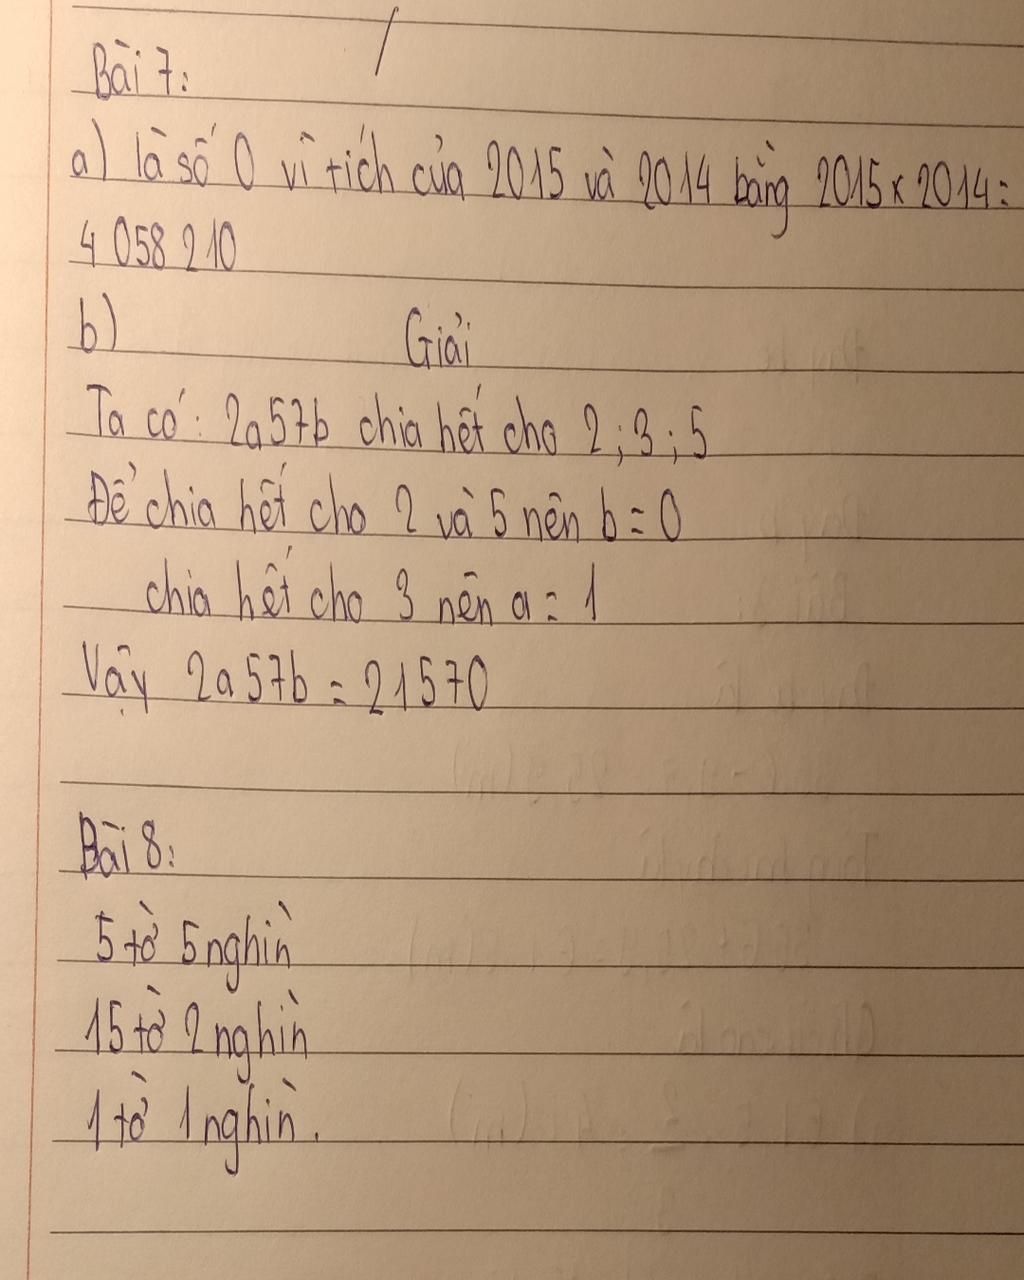 Bài 7:
a) là số 0 vì tích của 2015 và 2014 bằng 2015 x 2014 =
4 058 210
b) Giải
Ta có: 2a57b chia hết cho 2; 3; 5
Để chia hết cho 2 và 5 nên b = 0
chia hết cho 3 nên a = 1
Vậy 2a57b = 21570
Bài 8:
5 tờ 5 nghìn
15 tờ 2 nghìn
1 tờ 1 nghìn.